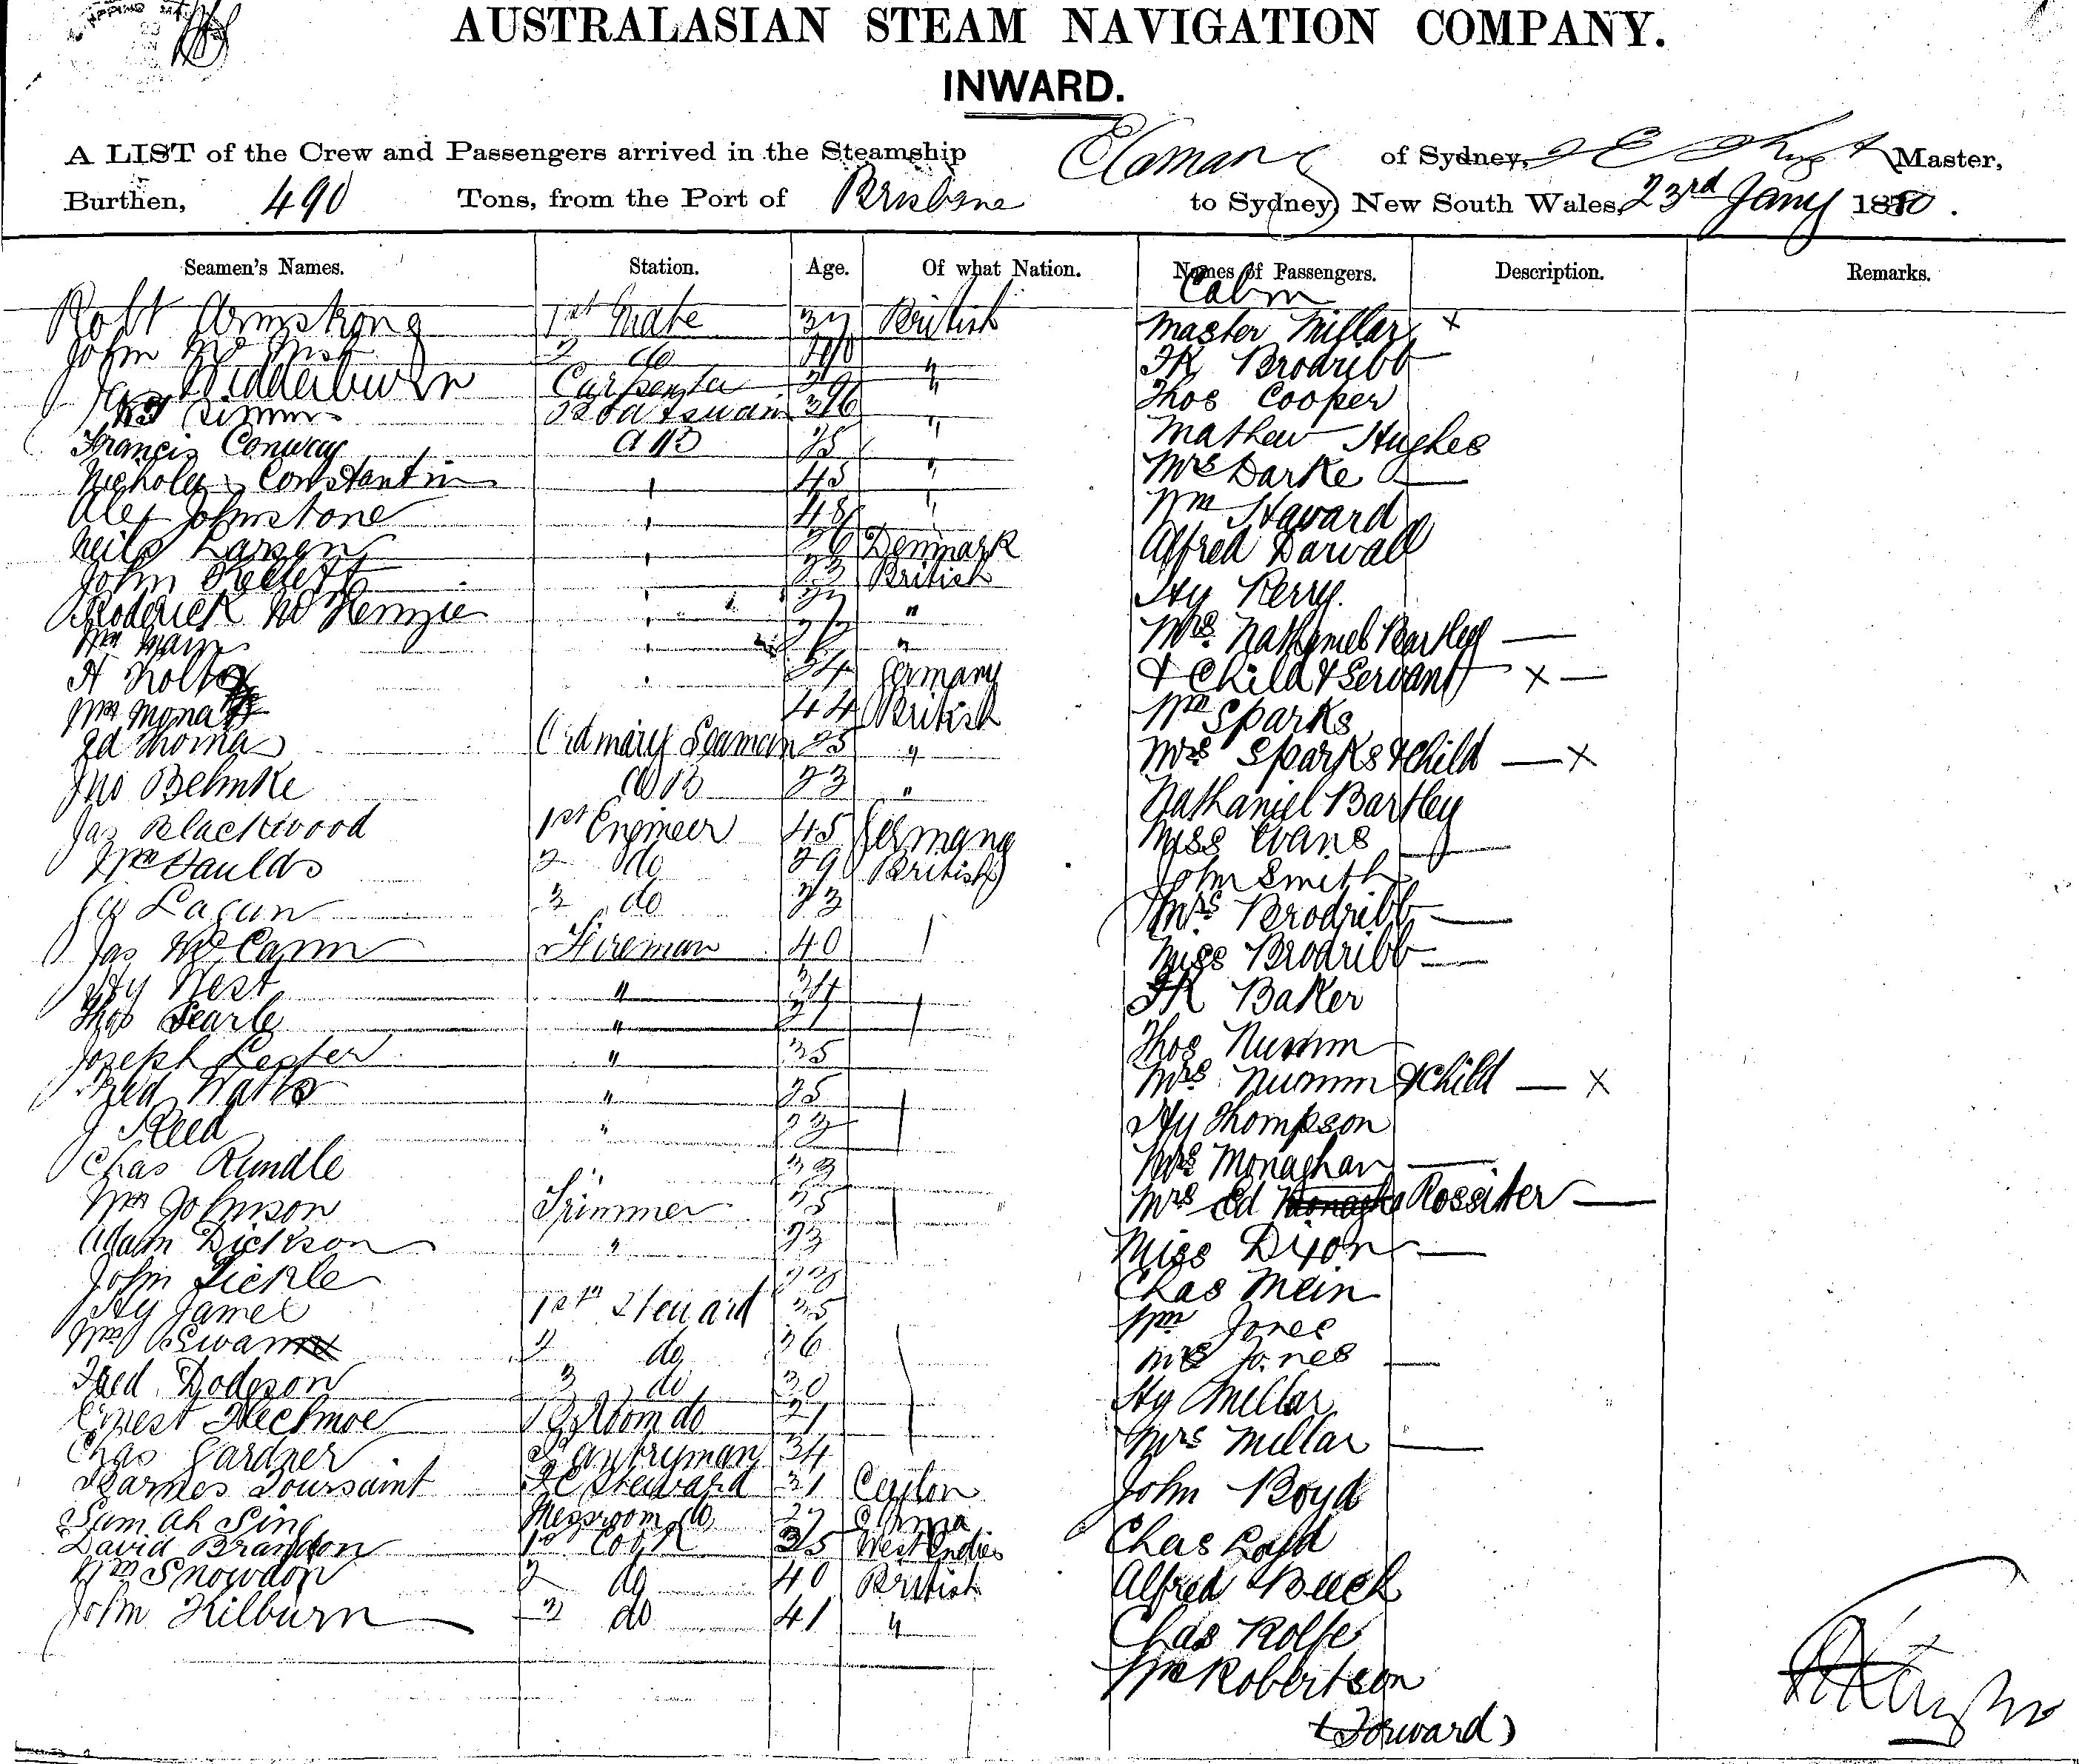 AUSTRALASIAN STEAM NAVIGATION COMPANY.
INWARD.
A LIST of the Crew and Passengers arrived in the Steamship of Sydney, Master,
Burthen, 490 Tons, from the Port of Brisbane to Sydney New South Wales, 23rd Jany 1880.
Seamen's Names. Station. Age. Of what Nation. Names of Passengers. Description. Remarks.
Cabin
Robt Armstrong 1st Mate British Master Millar x
John 2 do 40 " Brodribb
Carpenter " Thos Cooper
Boatswain " Mathew Hughes
Francis Conway AB 25 " Mrs Darke —
Nicholas Constantin " 45 " Wm Haward
Alex Johnstone " " Alfred Darvall
Neils Larsen " 26 Denmark Hy Perry.
John " 23 British Mrs Nathaniel Bartley —
Roderick McKenzie " " & Child & Servant x —
Wm " " Wm Sparks
H " 24 Germany Mrs Sparks & Child — x
Wm 44 British Nathaniel Bartley
Ed Thomas Ordinary Seaman 25 " Miss Evans —
Jno Behnke AB 23 " John Smith
Jas Blackwood 1st Engineer 45 Germany Mrs Brodribb —
Wm Faulds 2 do 29 British Miss Brodribb —
Lagan 3 do 33 Baker
Jas McCann Fireman 40 Thos Numm
Hy West " 24 Mrs Numm & Child — x
Thos Searle " 21 Hy Thompson
Joseph Lester " 35 Mrs Monaghan —
Fred Watts " 25 Mrs Ed Rossiter —
J Reed " 23 Miss Dixon —
Chas Rundle " Chas Mein
Wm Johnson Trimmer 25 Wm Jones
Adam Dickson " 23 Mrs Jones —
John Tickle Hy Millar
Hy James 1st Steward 35 Mrs Millar —
Wm Swan 2 do 36 John Boyd
Fred Dodgson 3 do 30 Chas
Ernest do 21 Alfred Beeck
Chas Gardner Pantryman 34 Chas Rolfe
Toussaint Steward 31 Ceylon Wm Robertson
Sam Ah Sing Messroom do 27 China
David Brandon 1st Cook 35 West Indies
Wm Snowdon 2 do 40 British
John Kilburn 3 do 41 "
(Forward)